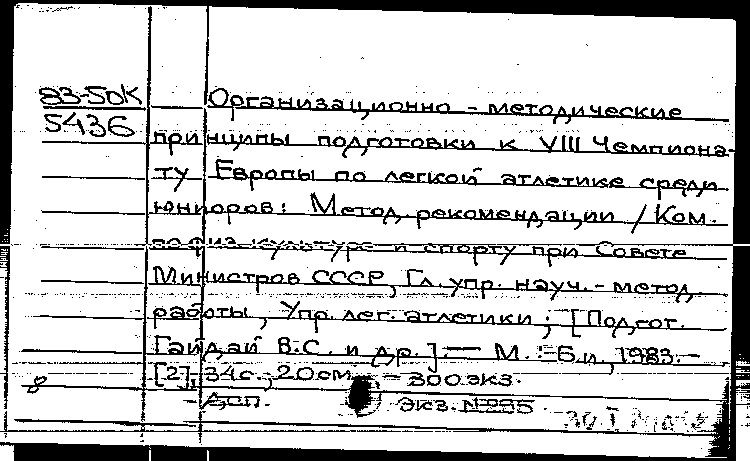 83-50К
5436
Организационно - методические
принципы подготовки к VIII Чемпиона-
ту Европы по легкой атлетике среди
юниоров: Метод. рекомендации / Ком.
по физ. культуре и спорту при Совете
Министров СССР, Гл. упр. науч. - метод.
работы, Упр. лег. атлетики; [Подгот.
Гайдай В.С. и др.] — М.: Б.и., 1983. -
[2], 34 с., 20 см. - 300 экз.
Экз. №